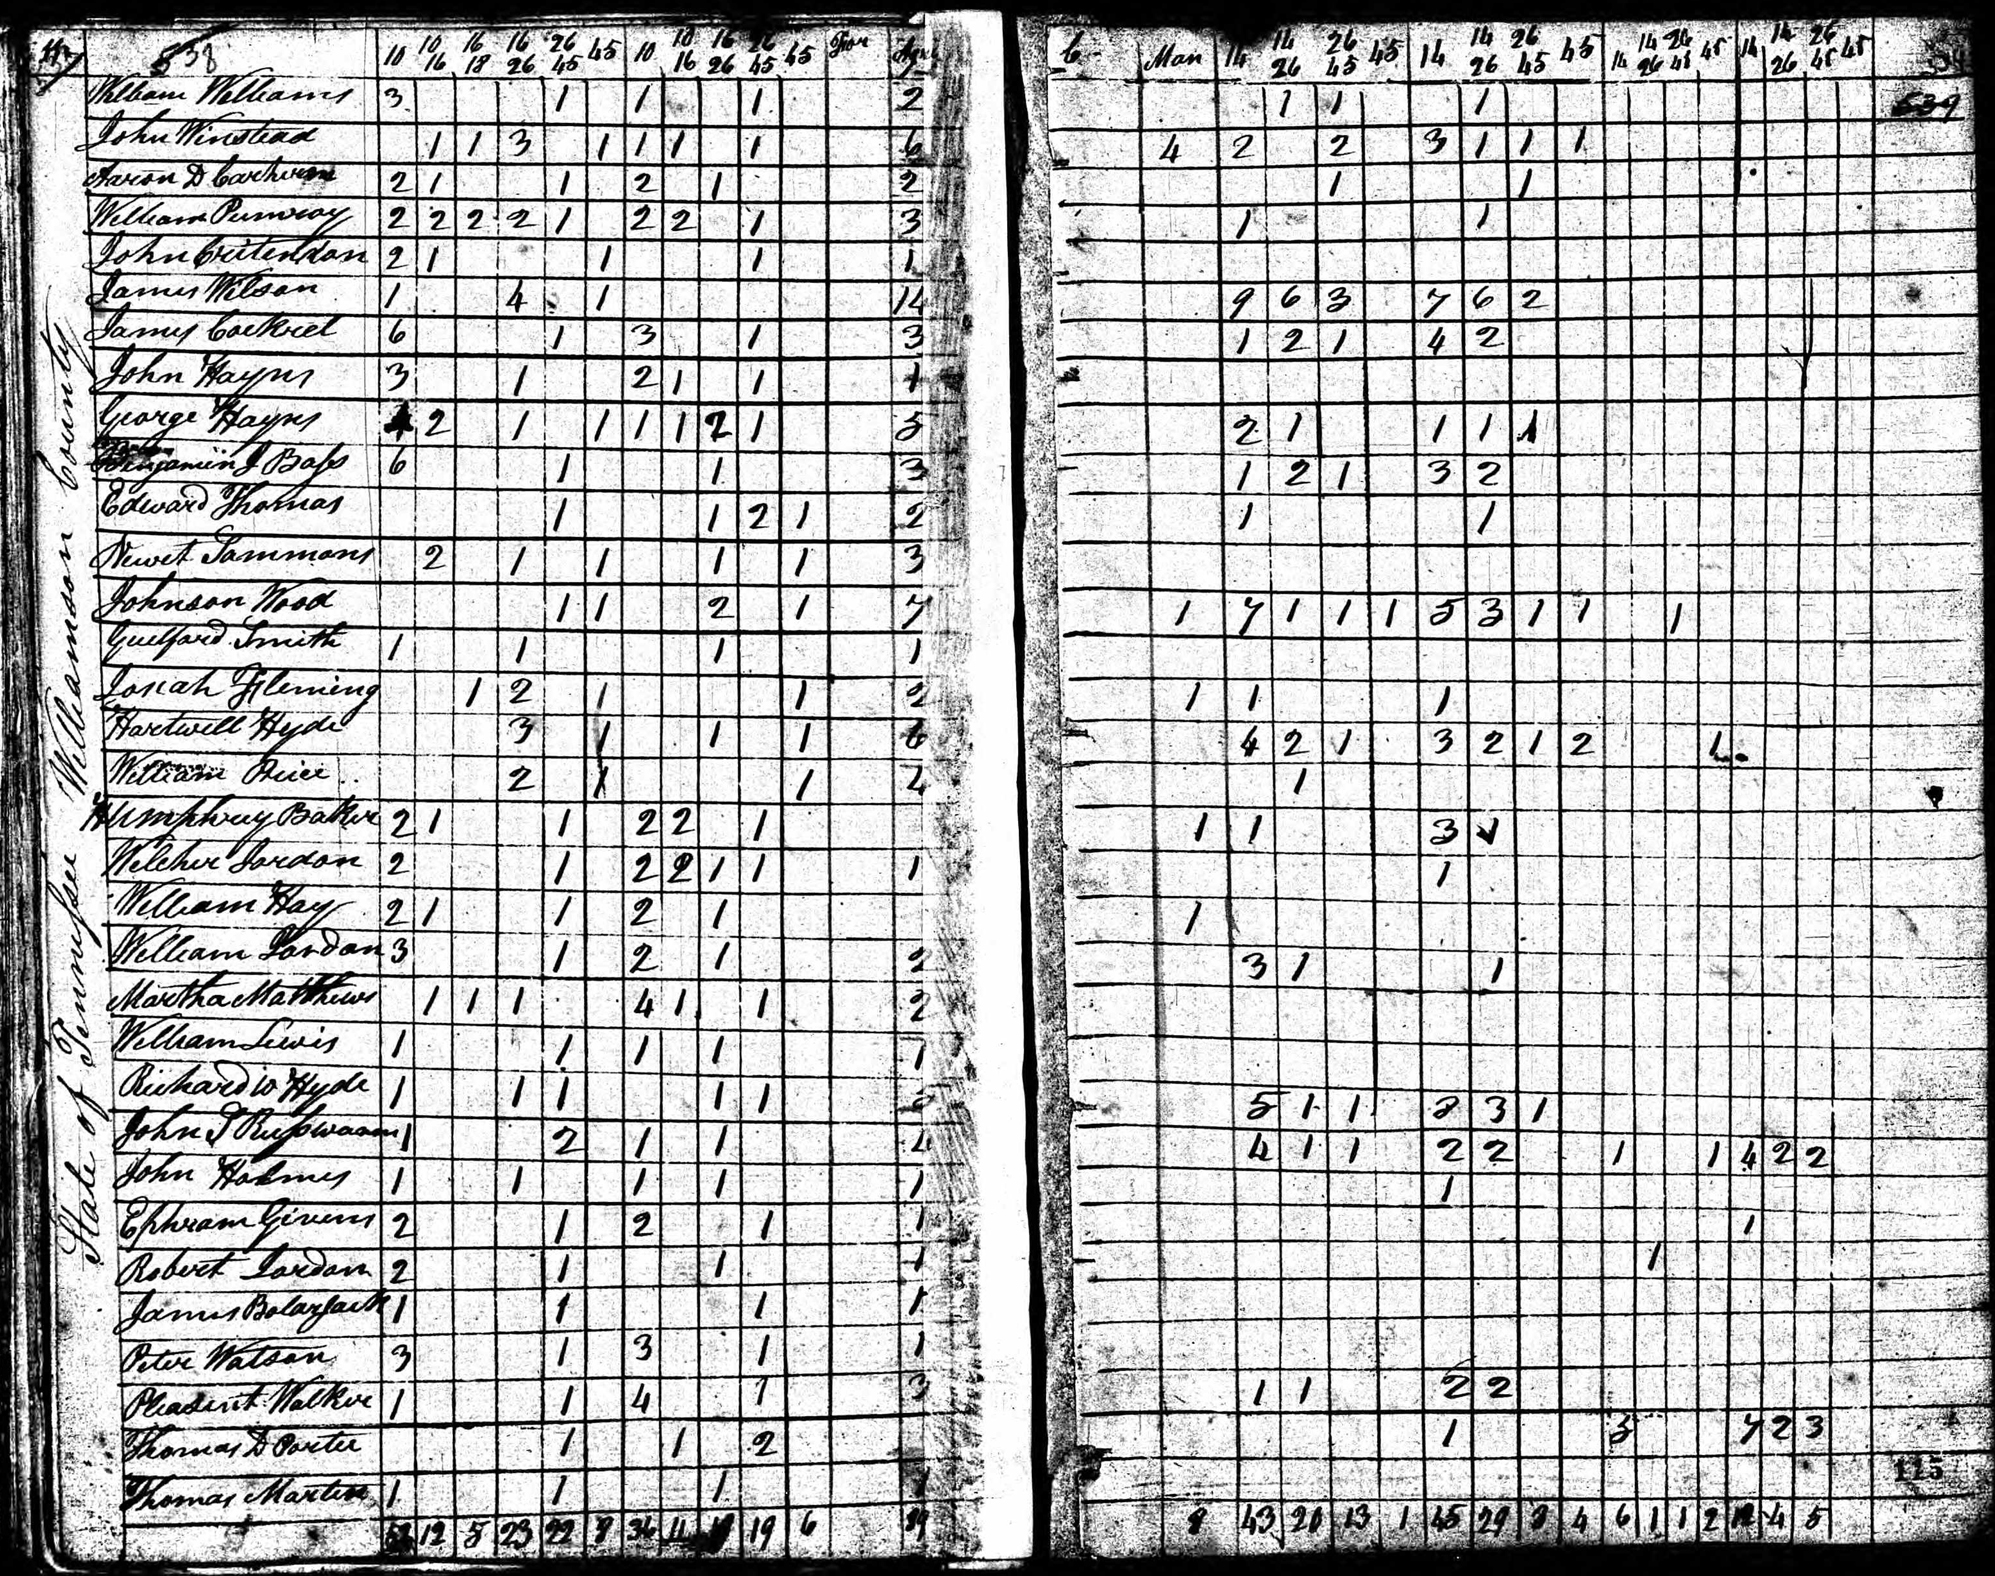 538
10 10/16 16/18 16/26 26/45 45 10 10/16 16/26 26/45 45 For Agri C Man 14 14/26 26/45 45 14 14/26 26/45 45 14 14/26 26/45 45 14 14/26 26/45 45
State of Tennessee Williamson County
William Williams 3 1 1 1 2 1 1 1 539
John Winstead 1 1 3 1 1 1 1 6 4 2 2 3 1 1 1
Aaron D 2 1 1 2 1 2 1 1
William 2 2 2 2 1 2 2 1 3 1 1
John Critendon 2 1 1 1 1
James Wilson 1 4 1 14 9 6 3 7 6 2
James Cockriel 6 1 3 1 3 1 2 1 4 2
John Hayns 3 1 2 1 1 1
George Hayns 2 1 1 1 1 2 1 5 2 1 1 1 1
Benjamin J Bass 6 1 1 3 1 2 1 3 2
Edward Thomas 1 1 2 1 2 1 1
Newet Sammons 2 1 1 1 1 3
Johnson Wood 1 1 2 1 7 1 7 1 1 1 5 3 1 1 1
Guilford Smith 1 1 1 1
Josiah Fleming 1 2 1 1 2 1 1 1
Hartwell Hyde 3 1 1 1 6 4 2 1 3 2 1 2 1
William Price 2 1 1 1
Humphrey Baker 2 1 1 2 2 1 1 1 3 1
Welcher Jordon 2 1 2 2 1 1 1 1
William Hay 2 1 1 2 1 1
William Jordan 3 1 2 1 2 3 1 1
Martha Matthews 1 1 1 4 1 1 2
William Lewis 1 1 1 1 1
Richard W Hyde 1 1 1 1 1 5 1 1 3 1
John S Russwaam 1 2 1 1 4 1 1 2 2 1 1 4 2 2
John Holmes 1 1 1 1 1 1
Ephram Givens 2 1 2 1 1 1
Robert Jordan 2 1 1 1 1
James 1 1 1 1
Peter Watson 3 1 3 1 1
Pleasent Walker 1 1 4 1 3 1 1 2 2
Thomas D Porter 1 1 2 1 3 7 2 3
115
Thomas Martin 1 1 1 1
12 5 23 22 8 36 11 19 6 89 8 43 20 13 1 45 29 8 4 6 1 1 2 12 4 5